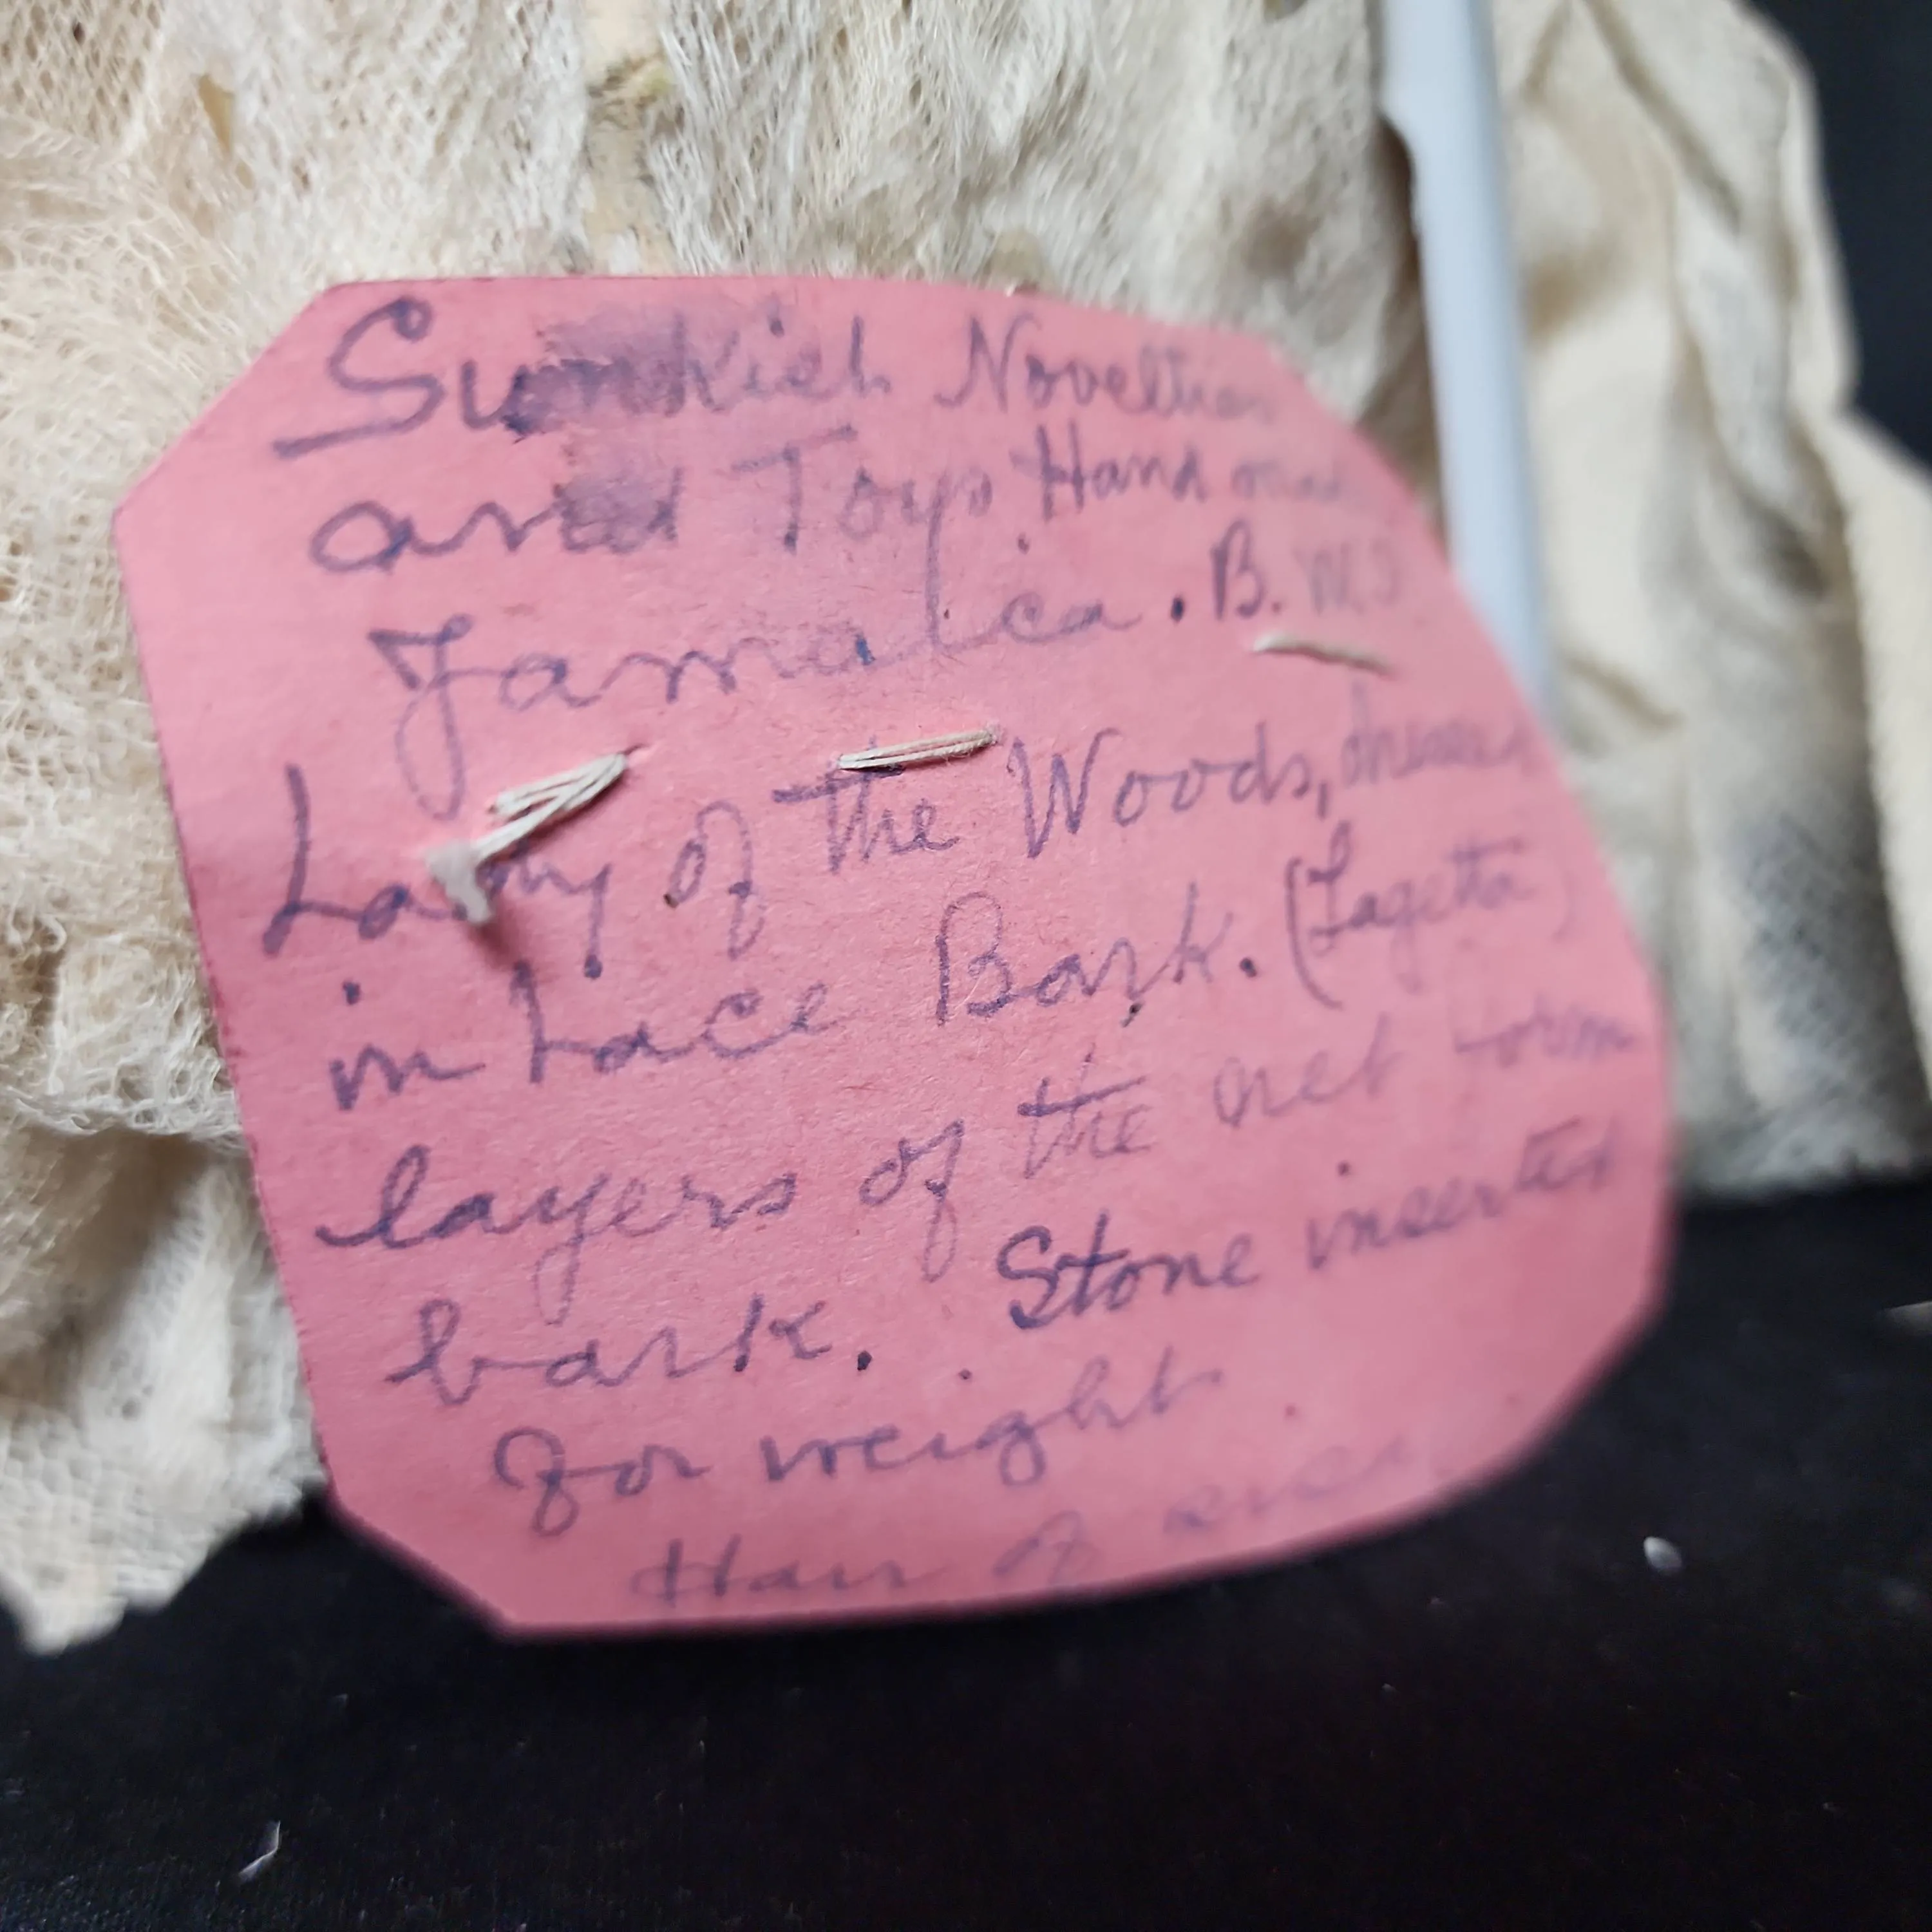 Sunkist Novelties
and Toys Hand made
Jamaica. B.W.I
Lady of the Woods, dressed
in Lace Bark. (Lagetta)
layers of the net form
bark. Stone inserted
for weight
Hair of